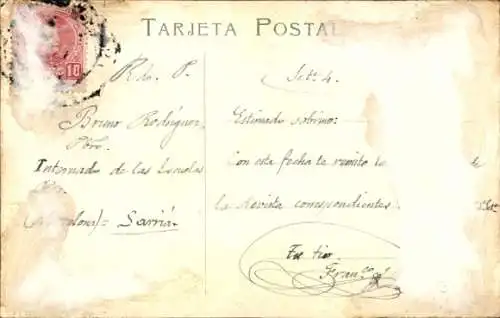 TARJETA POSTAL
10
R.do P.
Bruno Rodríguez
Pbro.
Internado de las Escuelas
Sarriá
Set. 4
Estimado sobrino:
Con esta fecha te remito
la Revista correspondientes
Tu tio
Fran.co